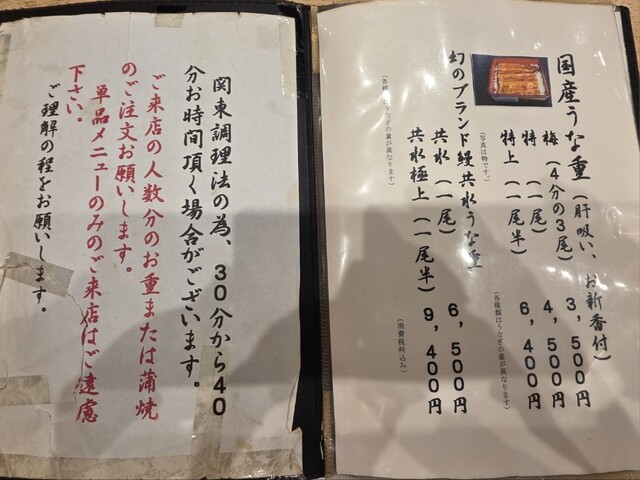 国産うな重(肝吸い、お新香付)
梅(4分の3尾) 3,500円
特(一尾) 4,500円
特上(一尾半) 6,400円
(写真は特です。)
(各種類はうなぎの量が異なります)
幻のブランド鰻共水うな重
共水(一尾) 6,500円
共水極上(一尾半) 9,400円
うなぎの量が異なります)
(消費税料込み)
関東調理法の為、30分から40
分お時間頂く場合がございます。
ご来店の人数分のお重または蒲焼
のご注文お願いします。
単品メニューのみのご来店はご遠慮
下さい。
ご理解の程をお願いします。